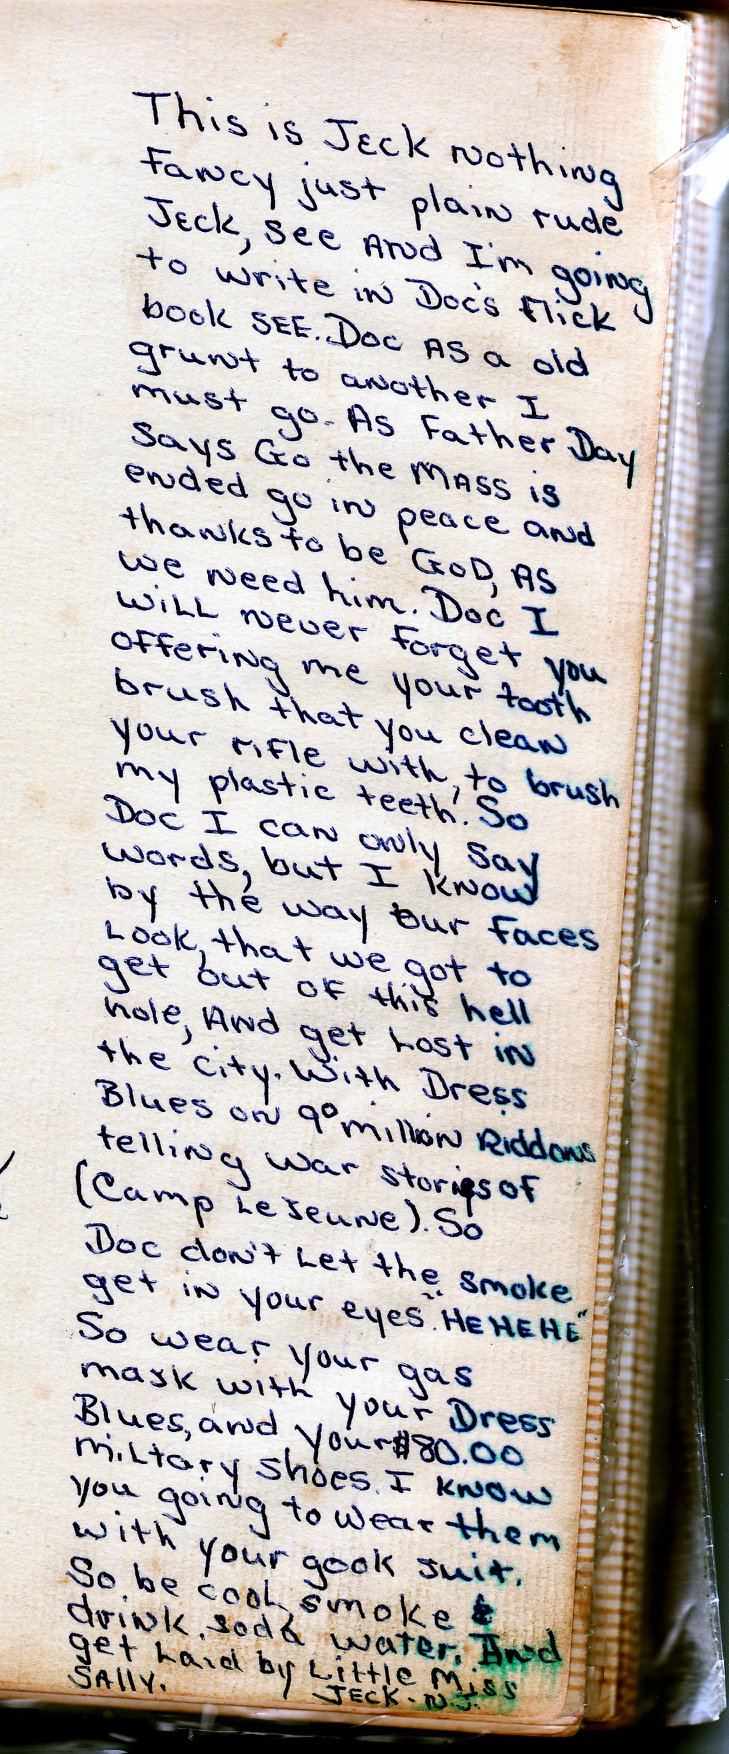 This is JEck nothing
fancy just plain rude
JEck, see And I'm going
to write in Doc's flick
book SEE. Doc AS a old
grunt to another I
must go. As Father Day
says Go the MASS is
ended go in peace and
thanks to be GoD, AS
we need him. Doc I
WiLL never forget you
offering me your tooth
brush that you clean
your rifle with, to brush
my plastic teeth. So
Doc I can only say
words, but I know
by the way our faces
Look, that we got to
get out of this hell
hole, And get Lost in
the city. With Dress
Blues on 90 million Riddons
telling war stories of
(Camp LeJeune). So
Doc don't Let the smoke
get in your eyes. "HEHEHE"
So wear your gas
mask with your Dress
Blues, and your $80.00
miLtary shoes. I know
you going to wear them
with your gook suit.
So be cooL, smoke &
drink soda water. And
get Laid by Little Miss
SALLY.
JECK. N.J.